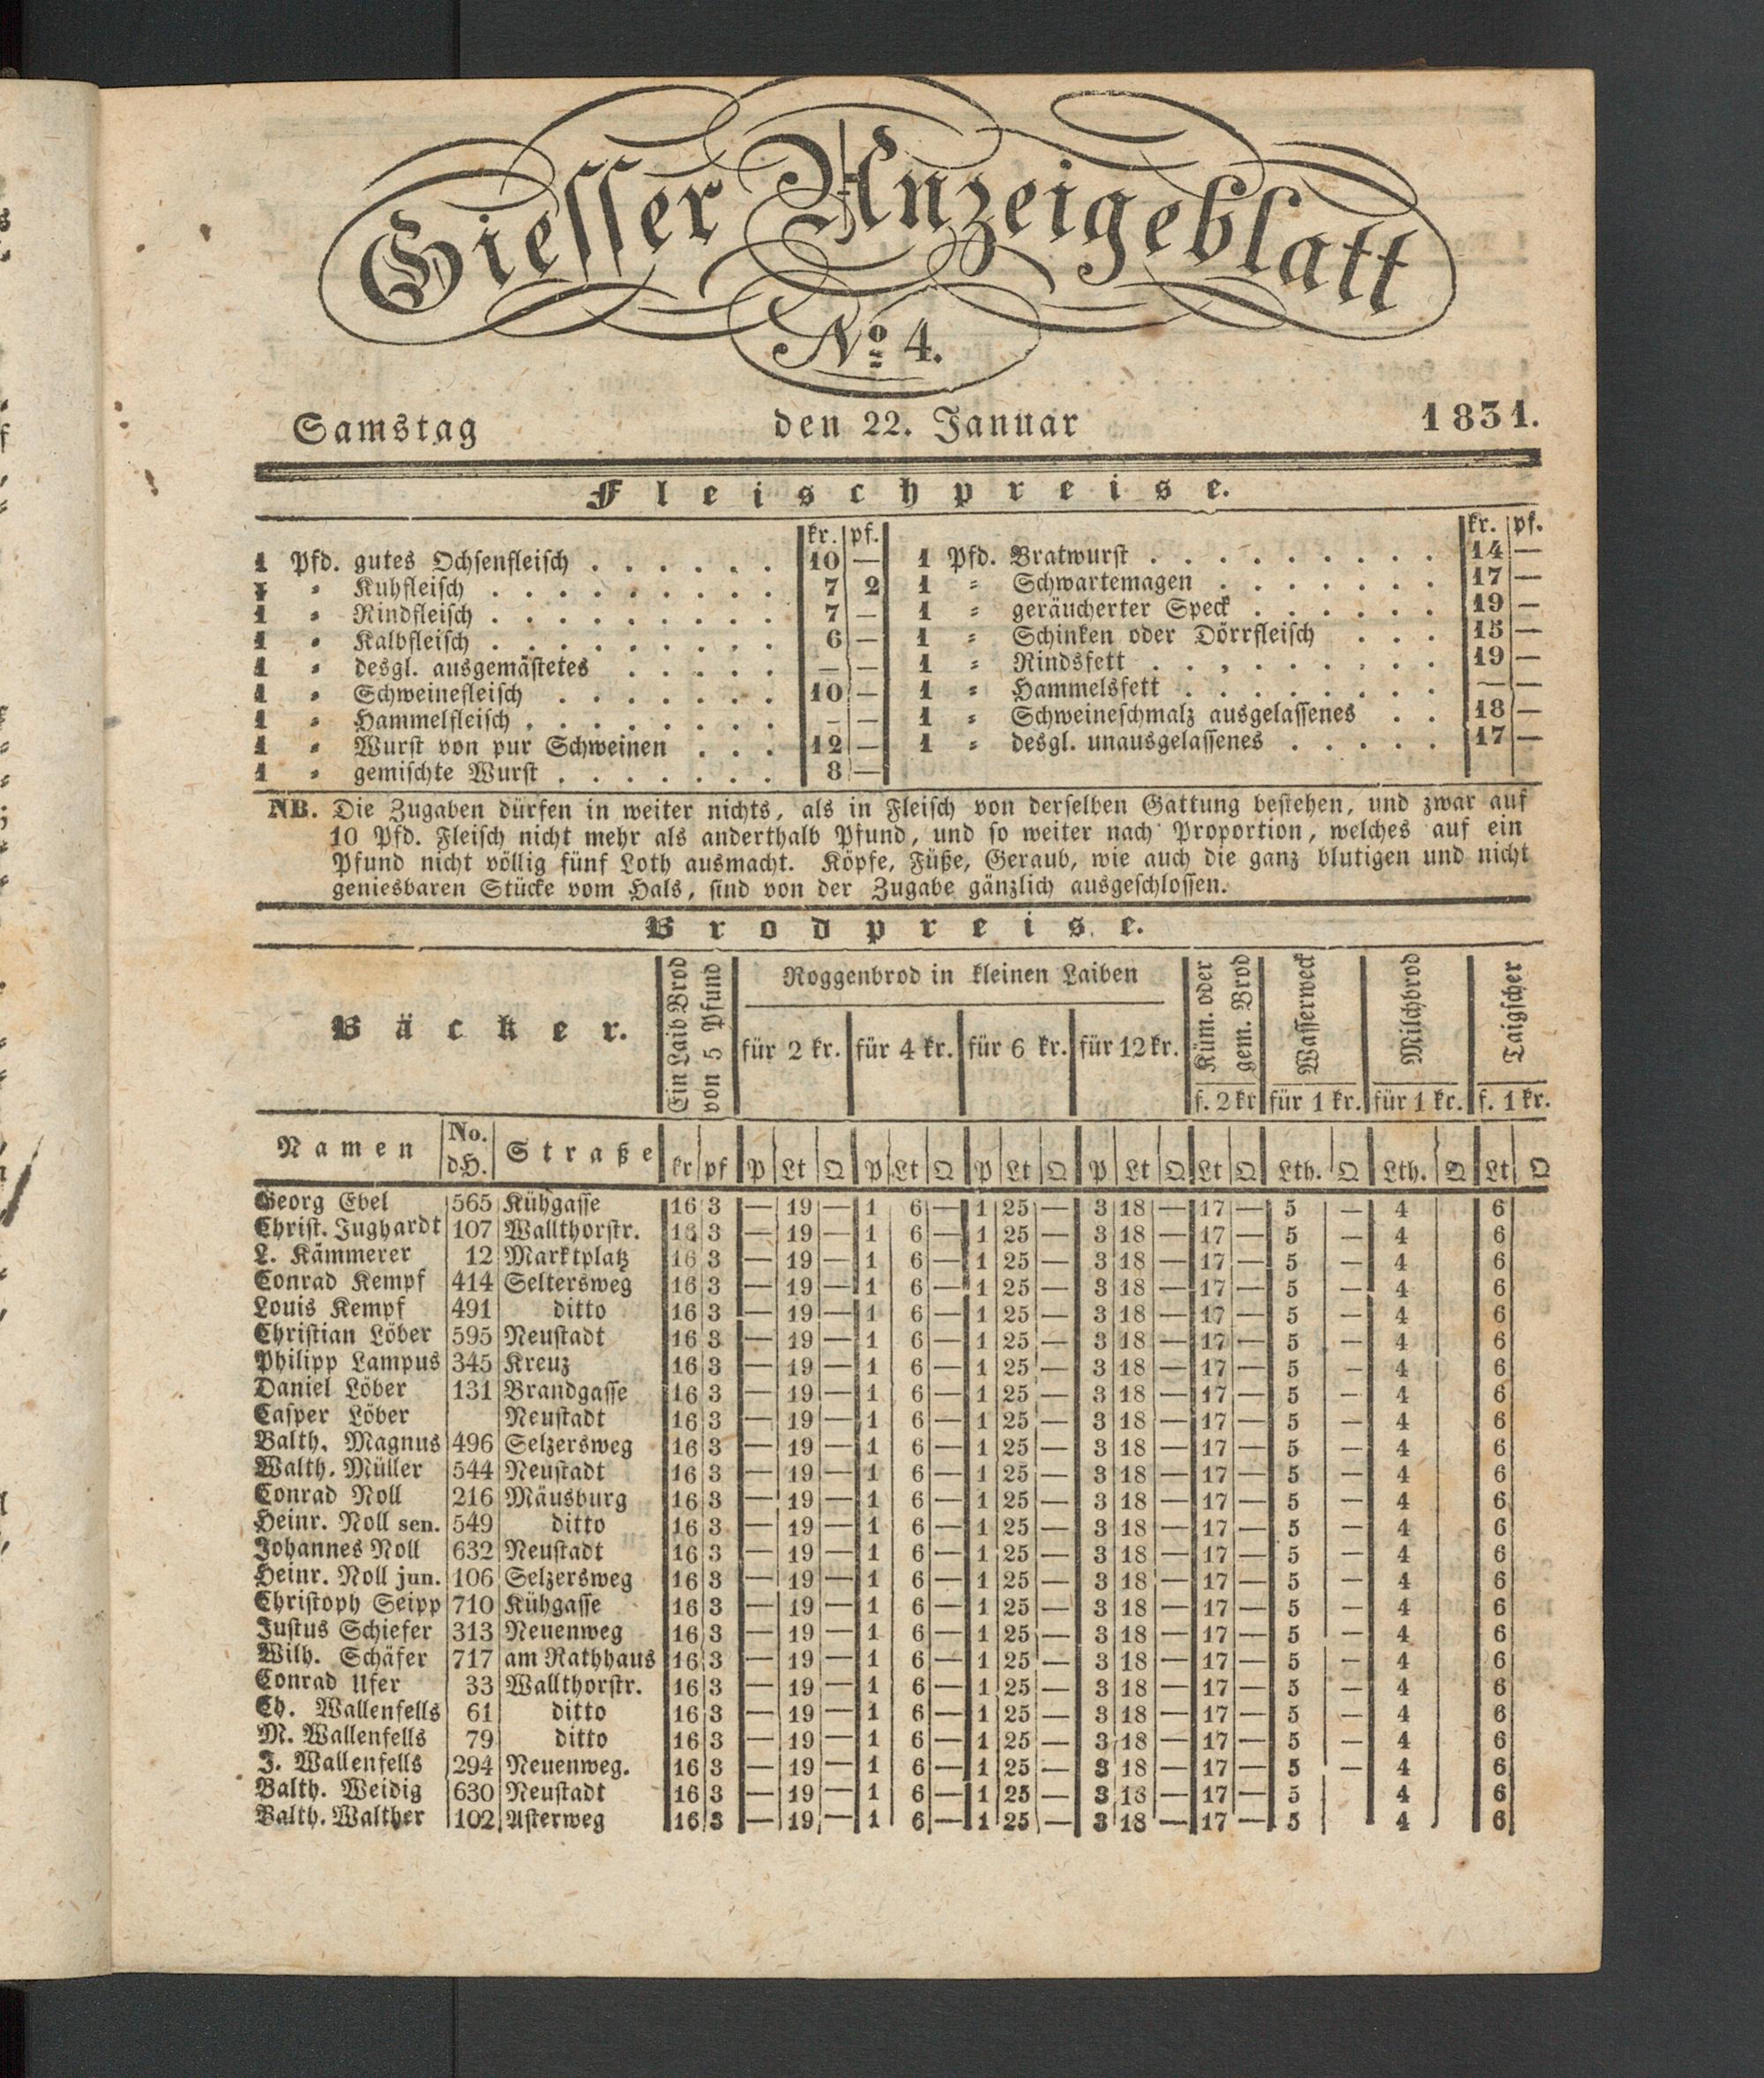 Giesser Anzeigeblatt
No. 4.
Samstag den 22. Januar 1831.
Fleischpreise.
kr. pf.
1 Pfd. gutes Ochsenfleisch . . . . . . 10 —
1 = Kuhfleisch . . . . . . . . . 7 2
1 = Rindfleisch . . . . . . . . . 7 —
1 = Kalbfleisch . . . . . . . . . 6 —
1 = desgl. ausgemästetes . . . . . — —
1 = Schweinefleisch . . . . . . . 10 —
1 = Hammelfleisch . . . . . . . . — —
1 = Wurst von pur Schweinen . . . 12 —
1 = gemischte Wurst . . . . . . . 8 —
kr. pf.
1 Pfd. Bratwurst . . . . . . . . . 14 —
1 = Schwartemagen . . . . . . . 17 —
1 = geräucherter Speck . . . . . . 19 —
1 = Schinken oder Dörrfleisch . . . 15 —
1 = Rindsfett . . . . . . . . . 19 —
1 = Hammelsfett . . . . . . . . — —
1 = Schweineschmalz ausgelassenes . . 18 —
1 = desgl. unausgelassenes . . . . . 17 —
NB. Die Zugaben dürfen in weiter nichts, als in Fleisch von derselben Gattung bestehen, und zwar auf
10 Pfd. Fleisch nicht mehr als anderthalb Pfund, und so weiter nach Proportion, welches auf ein
Pfund nicht völlig fünf Loth ausmacht. Köpfe, Füße, Geraub, wie auch die ganz blutigen und nicht
geniesbaren Stücke vom Hals, sind von der Zugabe gänzlich ausgeschlossen.
Brodpreise.
Bäcker.
Ein Laib Brod
von 5 Pfund
Roggenbrod in kleinen Laiben
für 2 kr. für 4 kr. für 6 kr. für 12 kr.
Küm. oder
gem. Brod
f. 2 kr
Wasserweck
für 1 kr.
Milchbrod
für 1 kr.
Taigscher
f. 1 kr.
Namen No. d.H. Straße kr pf P Lt Q P Lt Q P Lt Q P Lt Q Lt Q Lth. Q Lth. Q Lt Q
Georg Ebel 565 Kühgasse 16 3 — 19 — 1 6 — 1 25 — 3 18 — 17 — 5 — 4 6
Christ. Jughardt 107 Wallthorstr. 16 3 — 19 — 1 6 — 1 25 — 3 18 — 17 — 5 — 4 6
L. Kämmerer 12 Marktplatz 16 3 — 19 — 1 6 — 1 25 — 3 18 — 17 — 5 — 4 6
Conrad Kempf 414 Seltersweg 16 3 — 19 — 1 6 — 1 25 — 3 18 — 17 — 5 — 4 6
Louis Kempf 491 ditto 16 3 — 19 — 1 6 — 1 25 — 3 18 — 17 — 5 — 4 6
Christian Löber 595 Neustadt 16 3 — 19 — 1 6 — 1 25 — 3 18 — 17 — 5 — 4 6
Philipp Lampus 345 Kreuz 16 3 — 19 — 1 6 — 1 25 — 3 18 — 17 — 5 — 4 6
Daniel Löber 131 Brandgasse 16 3 — 19 — 1 6 — 1 25 — 3 18 — 17 — 5 — 4 6
Casper Löber Neustadt 16 3 — 19 — 1 6 — 1 25 — 3 18 — 17 — 5 — 4 6
Balth. Magnus 496 Selzersweg 16 3 — 19 — 1 6 — 1 25 — 3 18 — 17 — 5 — 4 6
Walth. Müller 544 Neustadt 16 3 — 19 — 1 6 — 1 25 — 3 18 — 17 — 5 — 4 6
Conrad Noll 216 Mäusburg 16 3 — 19 — 1 6 — 1 25 — 3 18 — 17 — 5 — 4 6
Heinr. Noll sen. 549 ditto 16 3 — 19 — 1 6 — 1 25 — 3 18 — 17 — 5 — 4 6
Johannes Noll 632 Neustadt 16 3 — 19 — 1 6 — 1 25 — 3 18 — 17 — 5 — 4 6
Heinr. Noll jun. 106 Selzersweg 16 3 — 19 — 1 6 — 1 25 — 3 18 — 17 — 5 — 4 6
Christoph Seipp 710 Kühgasse 16 3 — 19 — 1 6 — 1 25 — 3 18 — 17 — 5 — 4 6
Justus Schiefer 313 Neuenweg 16 3 — 19 — 1 6 — 1 25 — 3 18 — 17 — 5 — 4 6
Wilh. Schäfer 717 am Rathhaus 16 3 — 19 — 1 6 — 1 25 — 3 18 — 17 — 5 — 4 6
Conrad Ufer 33 Wallthorstr. 16 3 — 19 — 1 6 — 1 25 — 3 18 — 17 — 5 — 4 6
Ch. Wallenfells 61 ditto 16 3 — 19 — 1 6 — 1 25 — 3 18 — 17 — 5 — 4 6
M. Wallenfells 79 ditto 16 3 — 19 — 1 6 — 1 25 — 3 18 — 17 — 5 — 4 6
J. Wallenfells 294 Neuenweg. 16 3 — 19 — 1 6 — 1 25 — 3 18 — 17 — 5 — 4 6
Balth. Weidig 630 Neustadt 16 3 — 19 — 1 6 — 1 25 — 3 18 — 17 — 5 4 6
Balth. Walther 102 Asterweg 16 3 — 19 — 1 6 — 1 25 — 3 18 — 17 — 5 4 6